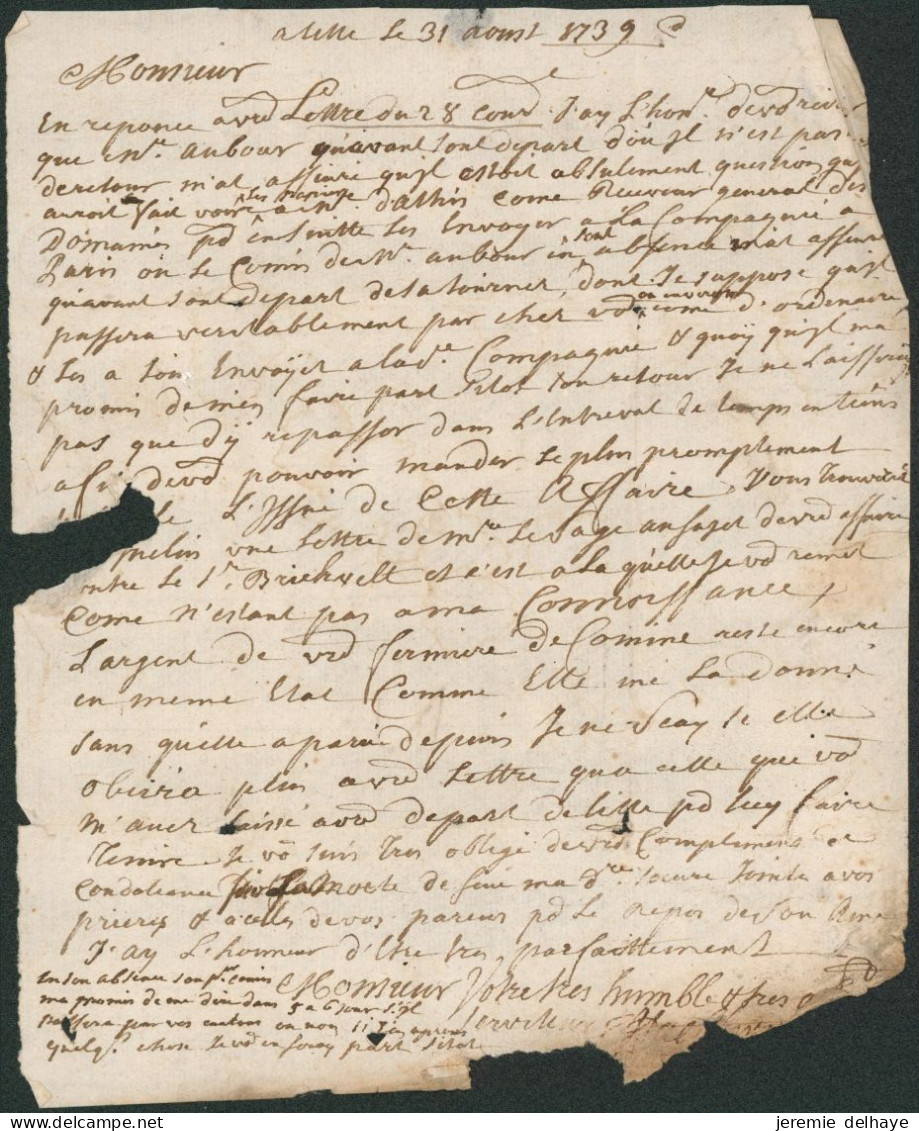 a Lille Le 31 aoust 1739
Monsieur
En reponce a vre Lettre du 28 Cour J'ay L'honr. de vo
que Mr. aubour qu'avant sont depart d'où Jl n'est pas
de retour m'at assuré qu'jl estoit absulument question qu'
auroit fait voire a Mr. Dathis come Receveur general des
Domaines pd ensuitte Les Envoyer a La Compagnie a
Paris où Le Comis de Mr. aubour en sont absence m'at assuré
qu'avant sont depart de sa tournee, dont Je suppose qu'jl
passera veritablement par cher vo come d'ordenaire
& Les a son Envoÿer a lad.e Compagnie & quoÿ qu'jl m'a
promis de m'en faire part sitot son retour Je ne Laisseré
pas que d'ÿ repasser dans L'Intreval de temps en tems
afi de vo pouvoir mander Le plus promptement
L'Issue de Cette Affaire, Vous trouveré
une Lettre de Mr. Lesage au sujet de vre affaire
ontre Le Sr. Brickwelt et c'est a Laquelle Je vo remet
Come n'estant pas a ma Connoissance,
L'argent de vre fermiere de Comine reste encore
en meme Etat Comme Elle me La donné
sans qu'elle a parue depuis Je ne scay se elle
obeira plus a vre Lettre qua celle que vo
m'avez Laissé avre depart de Lille pd Luy faire
Tenire Je vo suis tres obligé de vre Complimens de
Condoleance de feue ma sœure Jointe a vos
prieres & a celles de vos pareus pd Le Repos de son Ame
J'ay L'honneur d'Etre tres parfaittement
Monsieur Votre tres humble & tres o
serviteur
En son absence son pr. Comis
ma promis de me dire dans 5 a 6 Jour s'jl
passera par vos cantons ou non si J'en aprens
quelq. chose Je vo en feray part sitot
jeremie delhaye